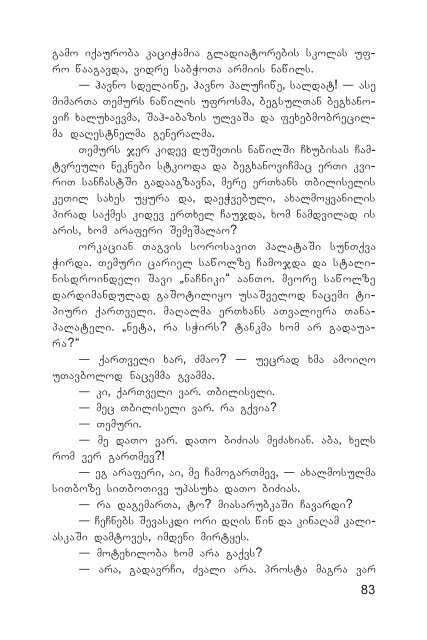 გამო იქაურობა კაციჭამია გლადიატორების სკოლას უფ-
რო წააგავდა, ვიდრე საბჭოთა არმიის ნაწილს.
— ჰავნო სდელაიწე, ჰავნო პალუჩიწე, სალდატ! — ასე
მიმართა თემურს ნაწილის უფროსმა, ბეგსულთან ბეგხანო-
ვიჩ ხალუხაევმა, შაჰ-აბაზის ულვაშა და ფეხებმობრეცილ-
მა დაღესტნელმა გენერალმა.
თემურს ჯერ კიდევ დუშეთის ნაწილში ჩხუბისას ჩამ-
ტვრეული ნეკნები სტკიოდა და ბეგხანოვიჩმაც ერთი კვი-
რით სანჩასტში გადააგზავნა, მერე ერთხანს თბილისელის
კეთილ სახეს უყურა და, დაეჭვებული, ახალმოყვანილის
პირად საქმეს კიდევ ერთხელ ჩაუჯდა, ხომ ნამდვილად ის
არის, ხომ არაფერი შემეშალაო?
ორკაციან თაგვის სოროსავით პალატაში სუნთქვა
ჭირდა. თემური ცარიელ საწოლზე ჩამოჯდა და სტალი-
ნისდროინდელი შავი „ნაჩნიკი“ აანთო. მეორე საწოლზე
დარდიმანდულად გაშოტილიყო უსაშველოდ ნაცემი ტი-
პიური ქართველი. მაღალმა ერთხანს ათვალიერა თანა-
პალატელი. „ნეტა, რა სჭირს? ტანკმა ხომ არ გადაუა-
რა?“
— ქართველი ხარ, ძმაო? — უეცრად ხმა ამოიღო
უთავბოლოდ ნაცემმა გვამმა.
— კი, ქართველი ვარ. თბილისელი.
— მეც თბილისელი ვარ. რა გქვია?
— თემური.
— მე დათო ვარ. დათო ბიძიას მეძახიან. აბა, ხელს
რომ ვერ გართმევ?!
— ეგ არაფერი, აი, მე ჩამოგართმევ, — ახალმოსულმა
სითბოზე სითბოთივე უპასუხა დათო ბიძიას.
— რა დაგემართა, ტო? მიასარუბკაში ჩავარდი?
— ჩეჩნებს შევასკდი ორი დღის წინ და კინაღამ კალი-
ასკაში დამტოვეს, იმდენი მირტყეს.
— მოტეხილობა ხომ არა გაქვს?
— არა, გადავრჩი, ძვალი არა. პროსტა მაგრა ვარ
83